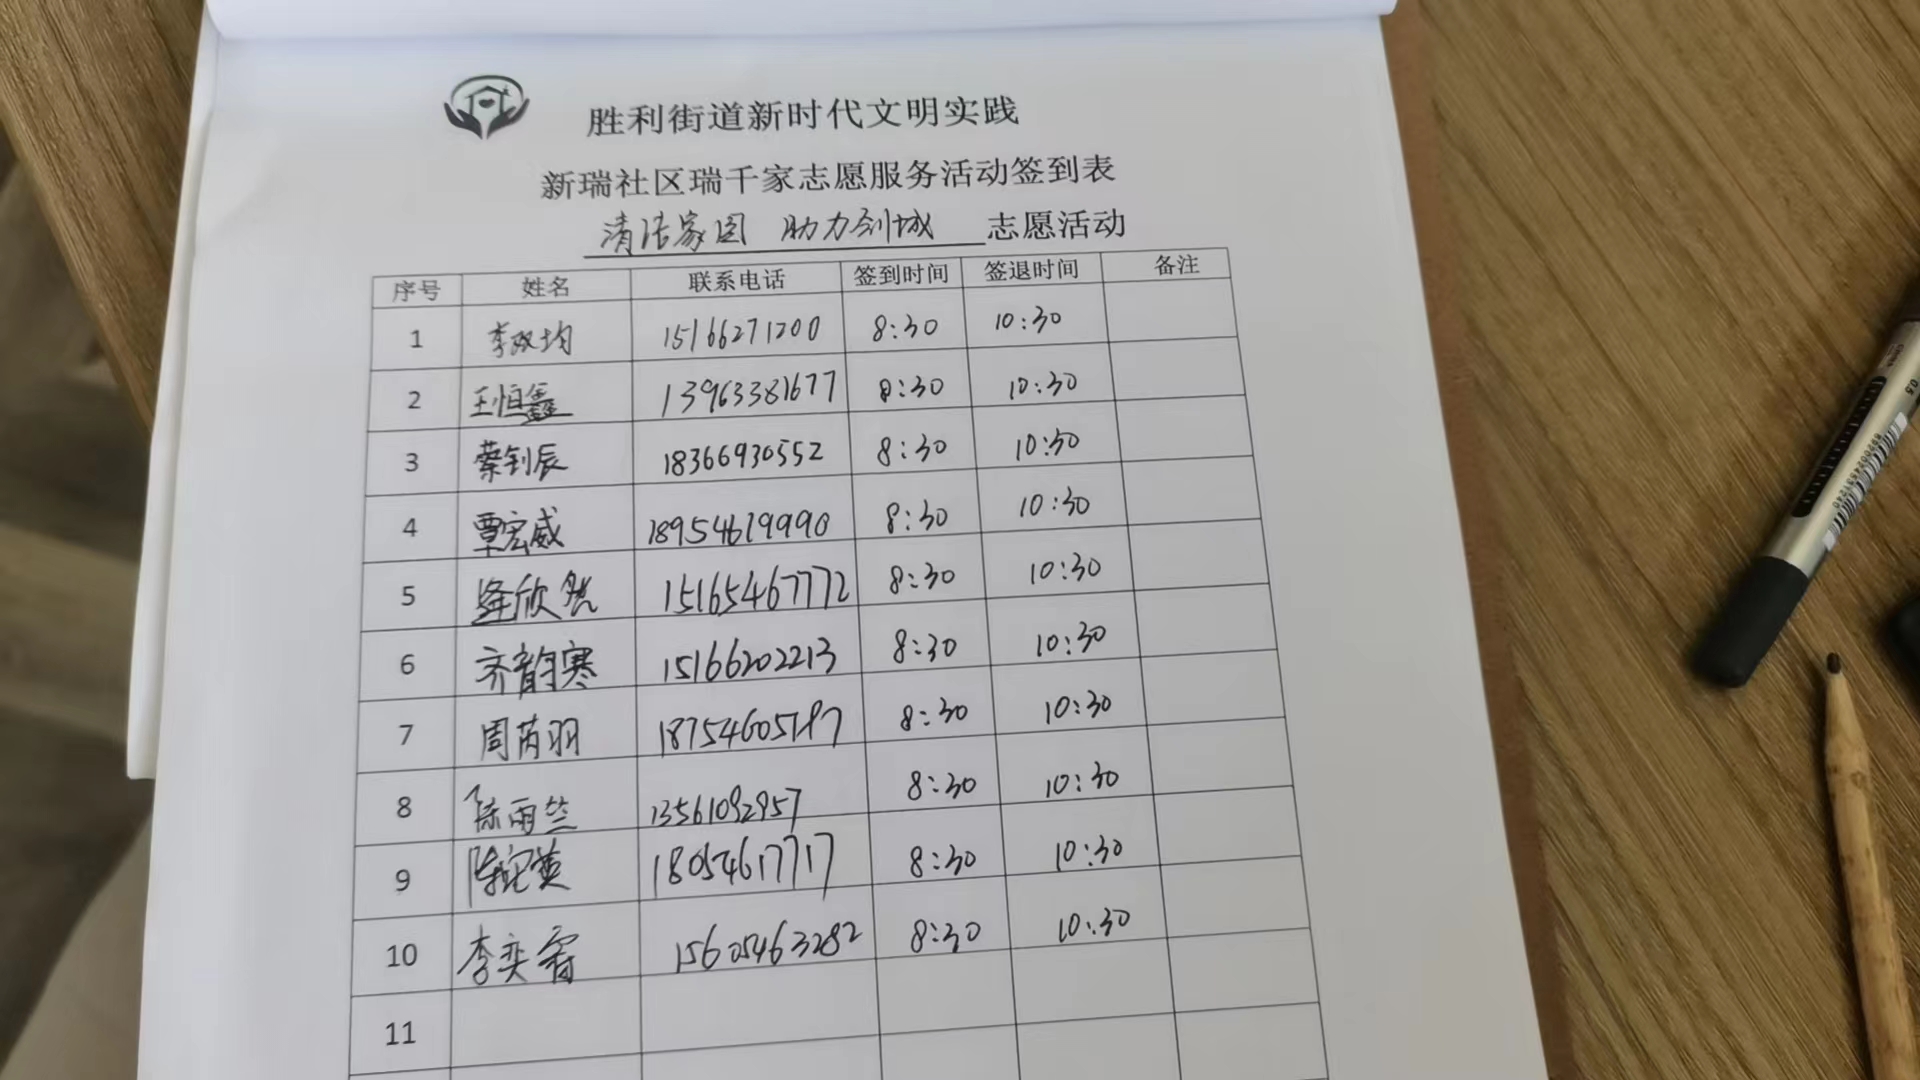 胜利街道新时代文明实践
新瑞社区瑞千家志愿服务活动签到表
清洁家园 助力创城 志愿活动
序号 姓名 联系电话 签到时间 签退时间 备注
1 李双均 15166271200 8:30 10:30
2 王恒鑫 13963381677 8:30 10:30
3 蔡钊辰 18366930552 8:30 10:30
4 覃宏威 18954619990 8:30 10:30
5 逄欣然 15165467772 8:30 10:30
6 齐韵寒 15166202213 8:30 10:30
7 周芮羽 18754605787 8:30 10:30
8 陈雨竺 13561092957 8:30 10:30
9 18054617717 8:30 10:30
10 李奕霏 15605463282 8:30 10:30
11
0.5